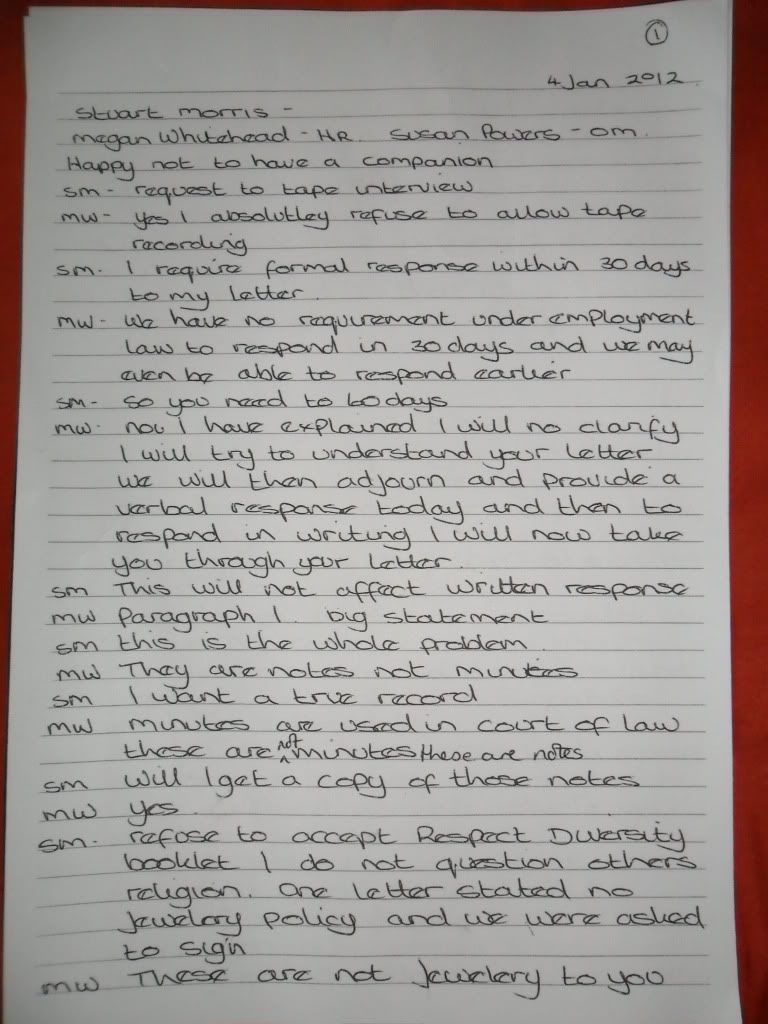 1
4 Jan 2012
Stuart Morris -
Megan Whitehead - HR. Susan Powers - OM.
Happy not to have a companion
SM - request to tape interview
MW - yes I absolutley refuse to allow tape
recording
SM. I require formal response within 30 days
to my letter.
MW - We have no requirement under employment
law to respond in 30 days and we may
even be able to respond earlier
SM - So you need to 60 days
MW. no I have explained I will no clarify
I will try to understand your letter
we will then adjourn and provide a
verbal response today and then to
respond in writing I will now take
you through your letter.
SM This will not affect written response
MW Paragraph 1. big statement
SM this is the whole problem.
MW They are notes not minutes
SM I want a true record
MW minutes are used in court of law
these are not minutes these are notes
SM will I get a copy of those notes
MW yes.
SM. refuse to accept Respect Diversity
booklet I do not question others
religion. One letter stated no
Jewelery policy and we were asked
to sign
MW These are not Jewelery to you